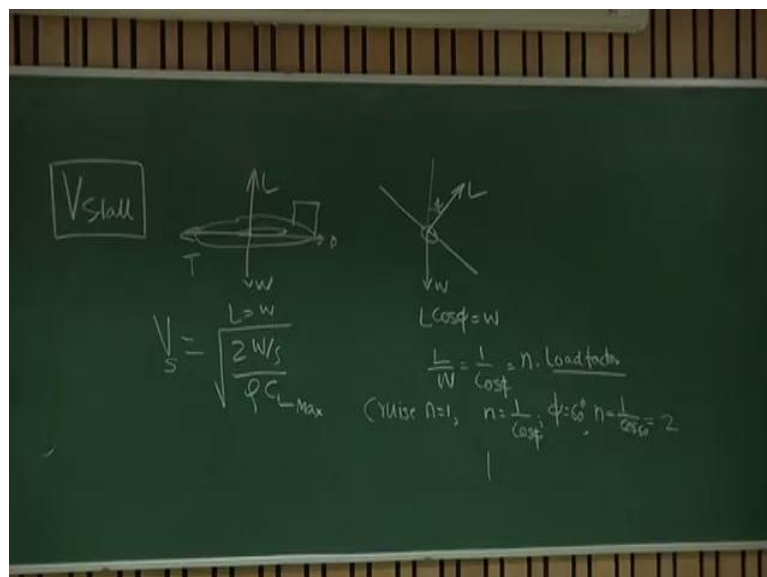 V Stall
L
T
D
W
L = W
V_S = √((2 W/S) / (ρ C_L Max))
φ
L
W
L cos φ = W
L/W = 1/Cos φ = n. Load factor
Cruise n=1, n = 1/Cos φ, φ=60° n = 1/cos 60° = 2